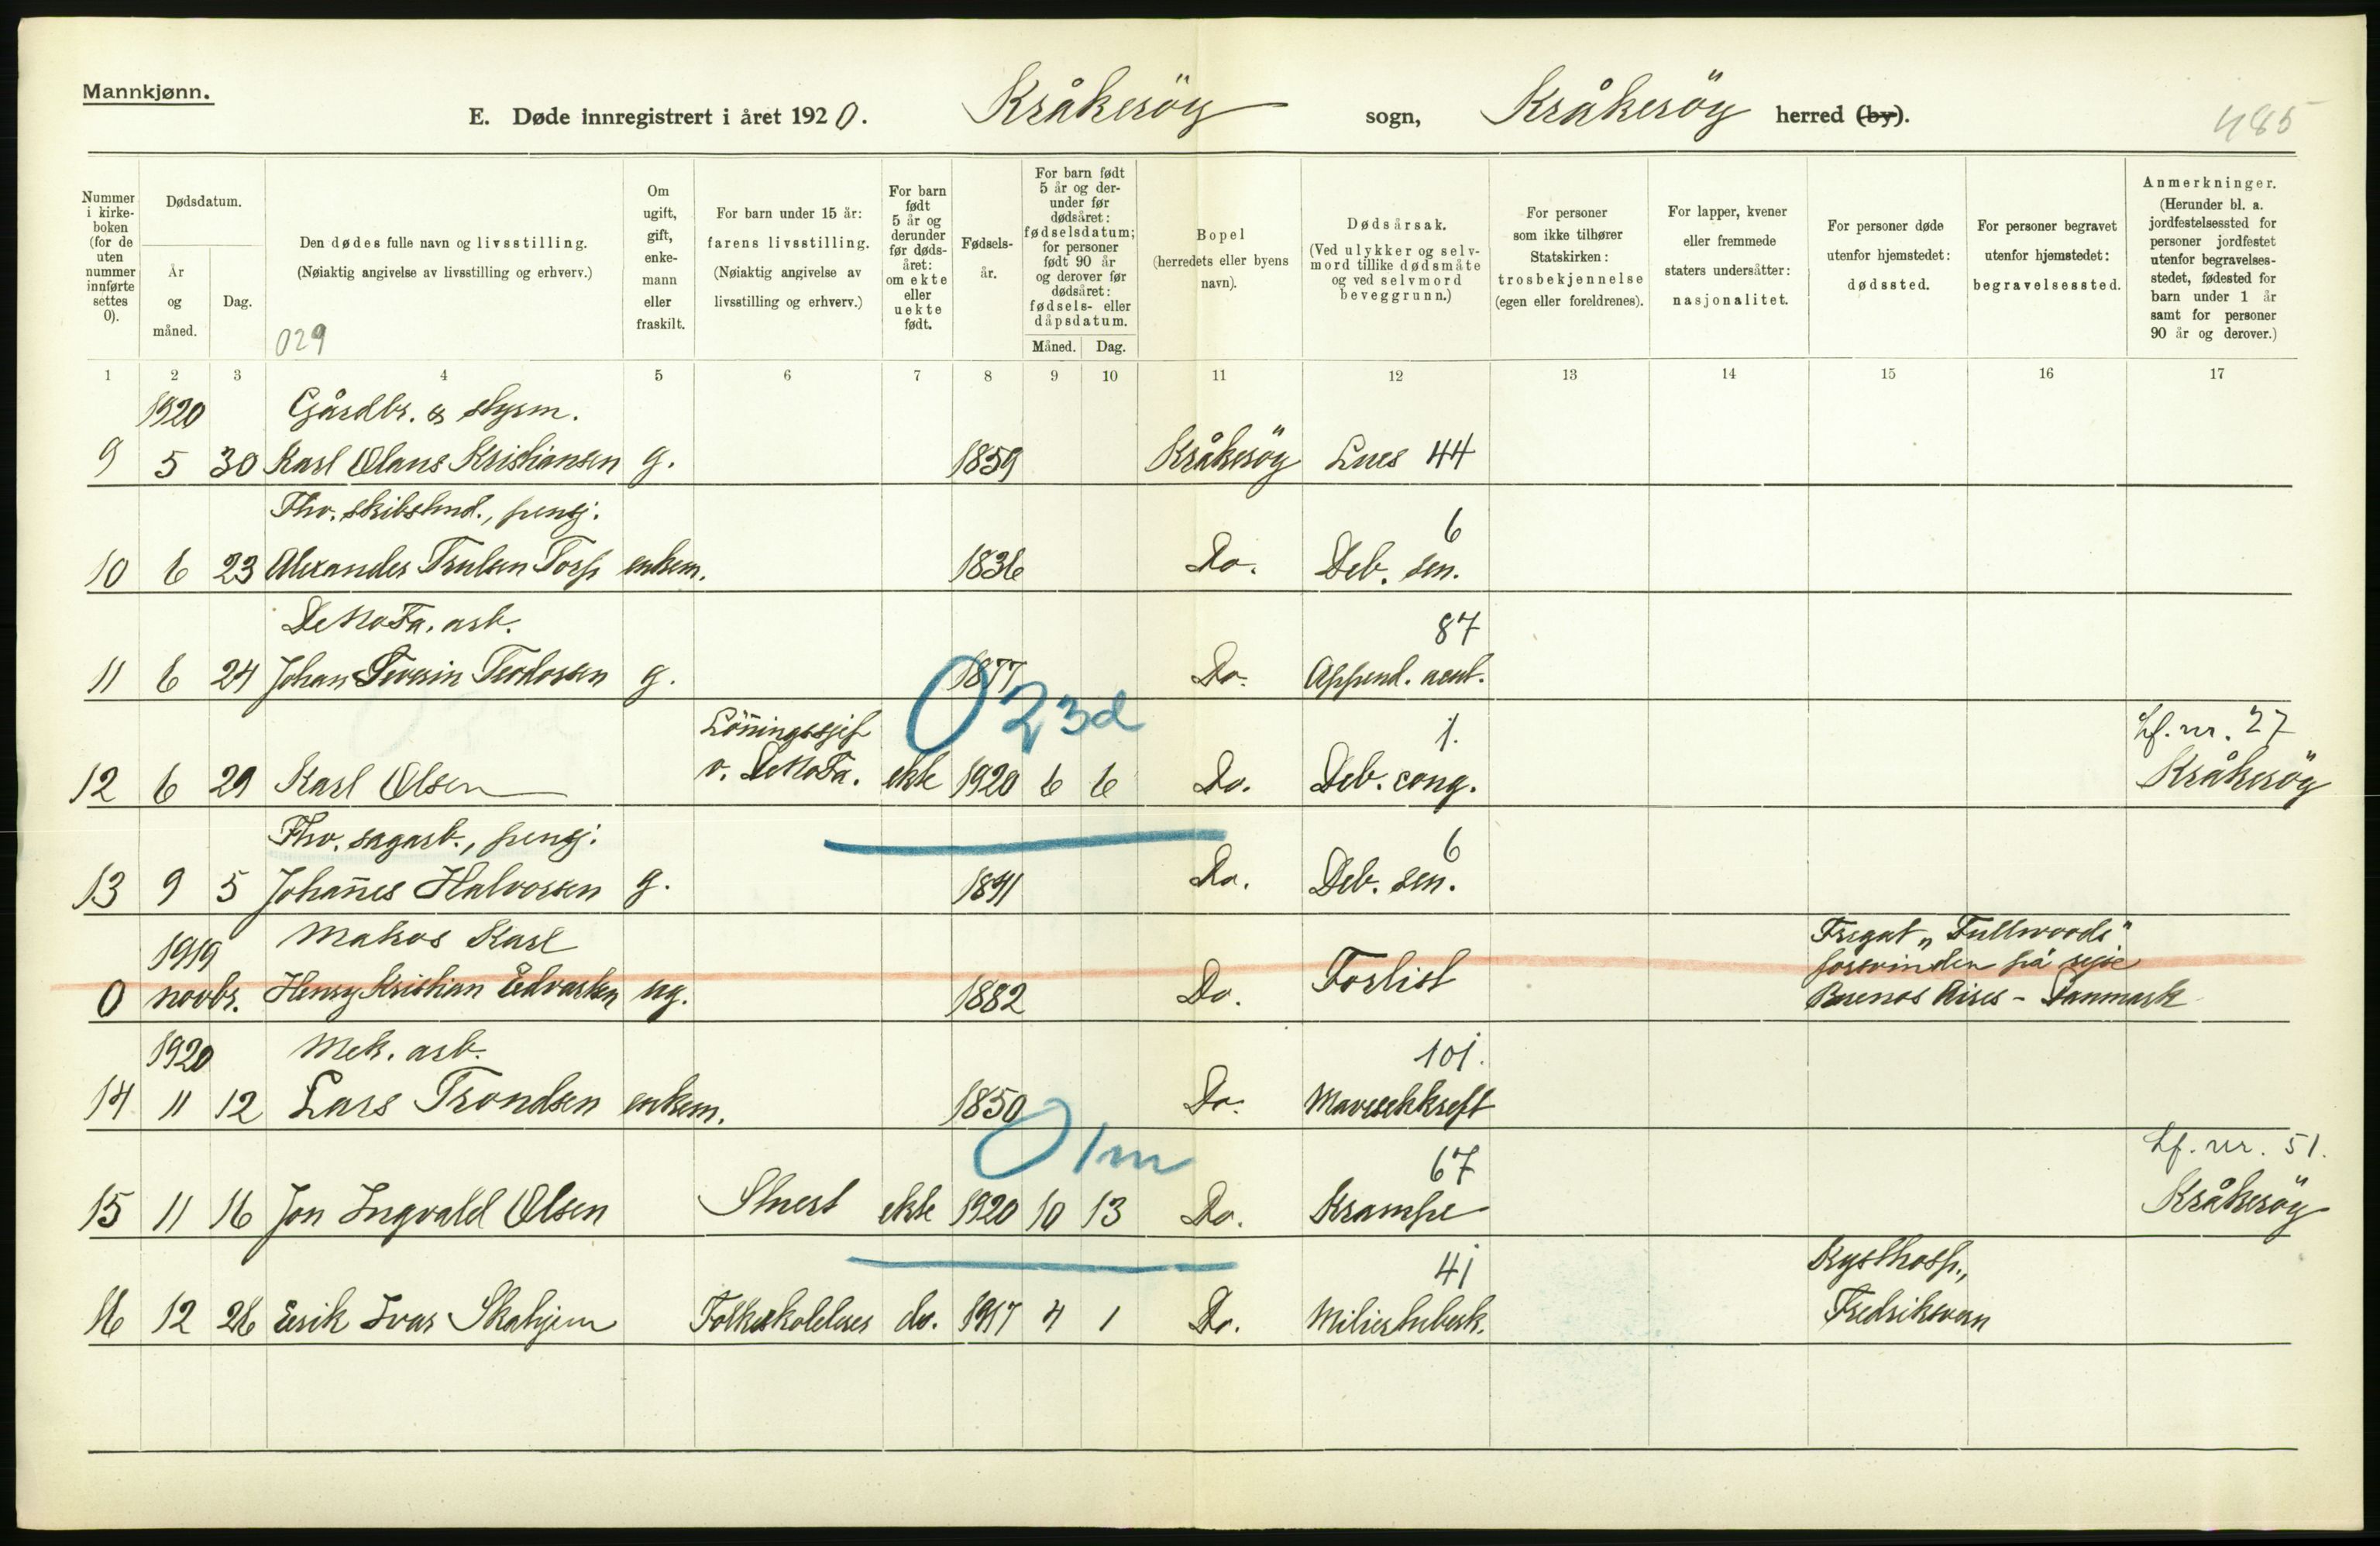 Mannkjønn.
E. Døde innregistrert i året 1920. Kråkeröy sogn, Kråkeröy herred (by).
485
Nummer i kirkeboken (for de uten nummer innførte settes 0).
Dødsdatum.
År og måned.
Dag.
Den dødes fulle navn og livsstilling.
(Nøiaktig angivelse av livsstilling og erhverv.)
029
Om ugift, gift, enkemann eller fraskilt.
For barn under 15 år: farens livsstilling.
(Nøiaktig angivelse av livsstilling og erhverv.)
For barn født 5 år og derunder før dødsåret: om ekte eller uekte født.
Fødselsår.
For barn født 5 år og derunder før dødsåret: fødselsdatum; for personer født 90 år og derover før dødsåret: fødsels- eller dåpsdatum.
Måned. Dag.
Bopel
(herredets eller byens navn).
Dødsårsak.
(Ved ulykker og selvmord tillike dødsmåte og ved selvmord beveggrunn.)
For personer som ikke tilhører Statskirken: trosbekjennelse (egen eller foreldrenes).
For lapper, kvener eller fremmede staters undersåtter: nasjonalitet.
For personer døde utenfor hjemstedet: dødssted.
For personer begravet utenfor hjemstedet: begravelsessted.
Anmerkninger.
(Herunder bl. a. jordfestelsessted for personer jordfestet utenfor begravelsesstedet, fødested for barn under 1 år samt for personer 90 år og derover.)
1 2 3 4 5 6 7 8 9 10 11 12 13 14 15 16 17
1920 Gårdbr. & styrm.
9 5 30 Karl Olaus Kristiansen g. 1859 Kråkeröy Lues 44
Fhv. skibstmd., pensj. 6
10 6 23 Alexander Trulsen Torp enkem. 1836 Do. Deb. sen.
DeNoFa. arb. 87
11 6 24 Johan Severin Teodorsen g. 1877 Do. Append. acut.
023d
Lönningssjef 1. Lf. nr. 27
12 6 29 Karl Olsen v. DeNoFa. ekte 1920 6 6 Do. Deb. cong. Kråkeröy
Fhv. sagarb., pensj. 6
13 9 5 Johannes Halvorsen g. 1841 Do. Deb. sen.
1919 Matros Karl Fregat „Fullwoods"
forsvinden på rejse
0 novbr. Henry Kristian Edvartsen ug. 1882 Do. Forlist Buenos Aires - Danmark
1920 Mek. arb. 101.
14 11 12 Lars Trondsen enkem. 1850 Do. Mavesekkreft
01m
67 Lf. nr. 51.
15 11 16 Jon Ingvald Olsen Stuert ekte 1920 10 13 Do. Krampe Kråkeröy
41 Kysthosp.,
16 12 26 Erik Ivar Skahjem Folkeskolelærer do. 1917 4 1 Do. Miliertuberk. Fredriksvern